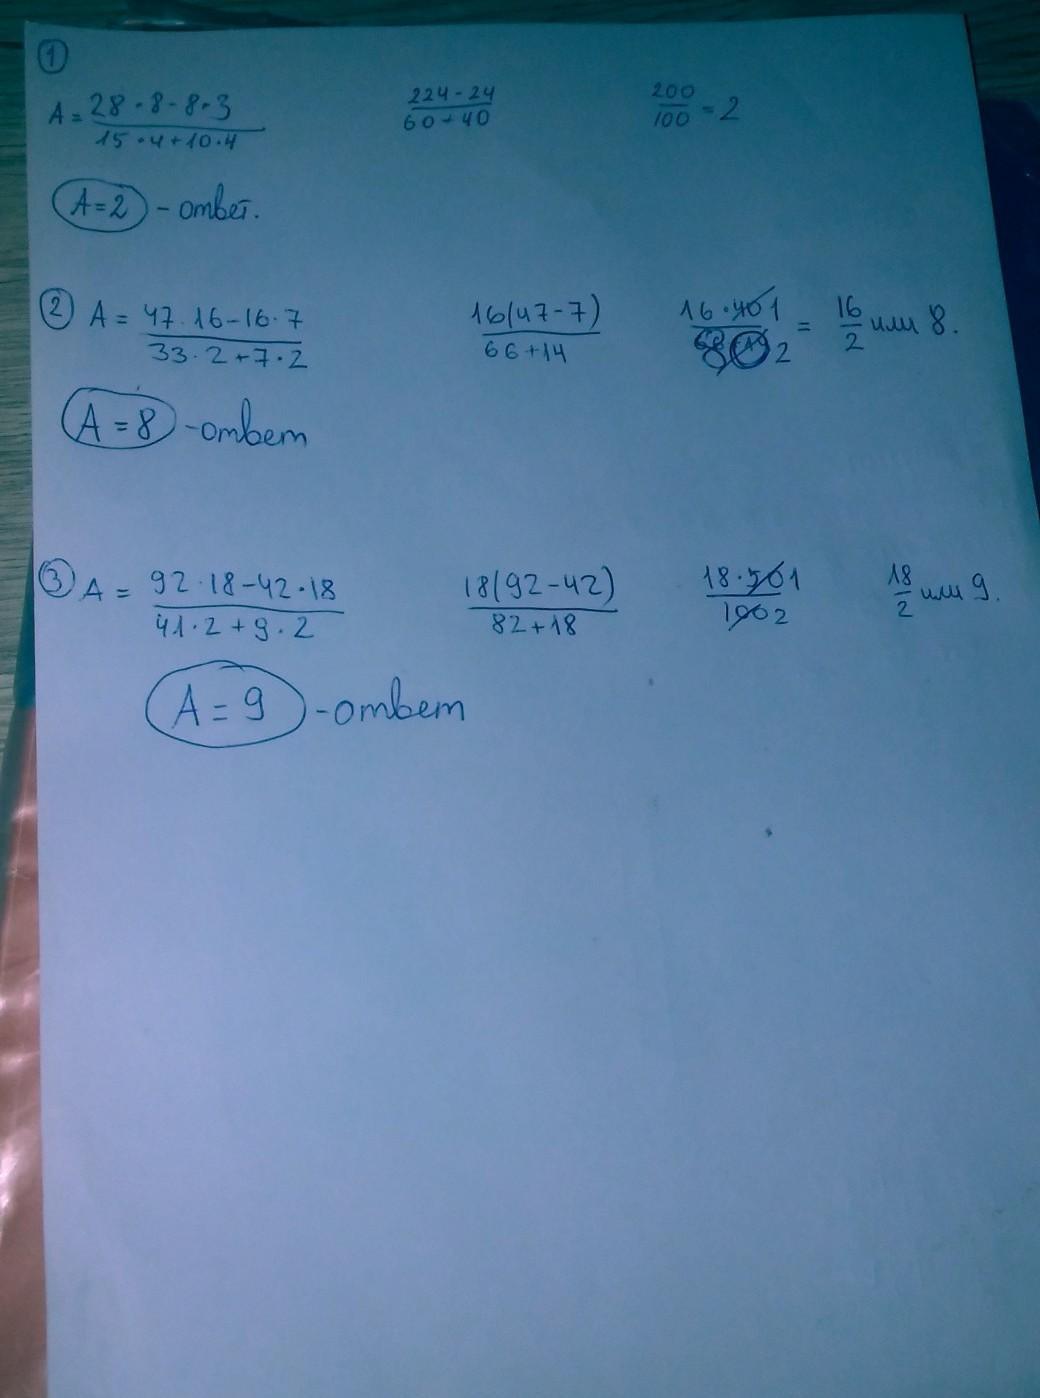 1
A = 28 · 8 - 8 · 3 / 15 · 4 + 10 · 4    224 - 24 / 60 + 40    200 / 100 = 2
A = 2 - ответ.
2 A = 47 · 16 - 16 · 7 / 33 · 2 + 7 · 2    16(47 - 7) / 66 + 14    16 · 40 1 / 80 2 = 16 / 2 или 8.
A = 8 - ответ
3 A = 92 · 18 - 42 · 18 / 41 · 2 + 9 · 2    18(92 - 42) / 82 + 18    18 · 50 1 / 100 2    18 / 2 или 9.
A = 9 - ответ